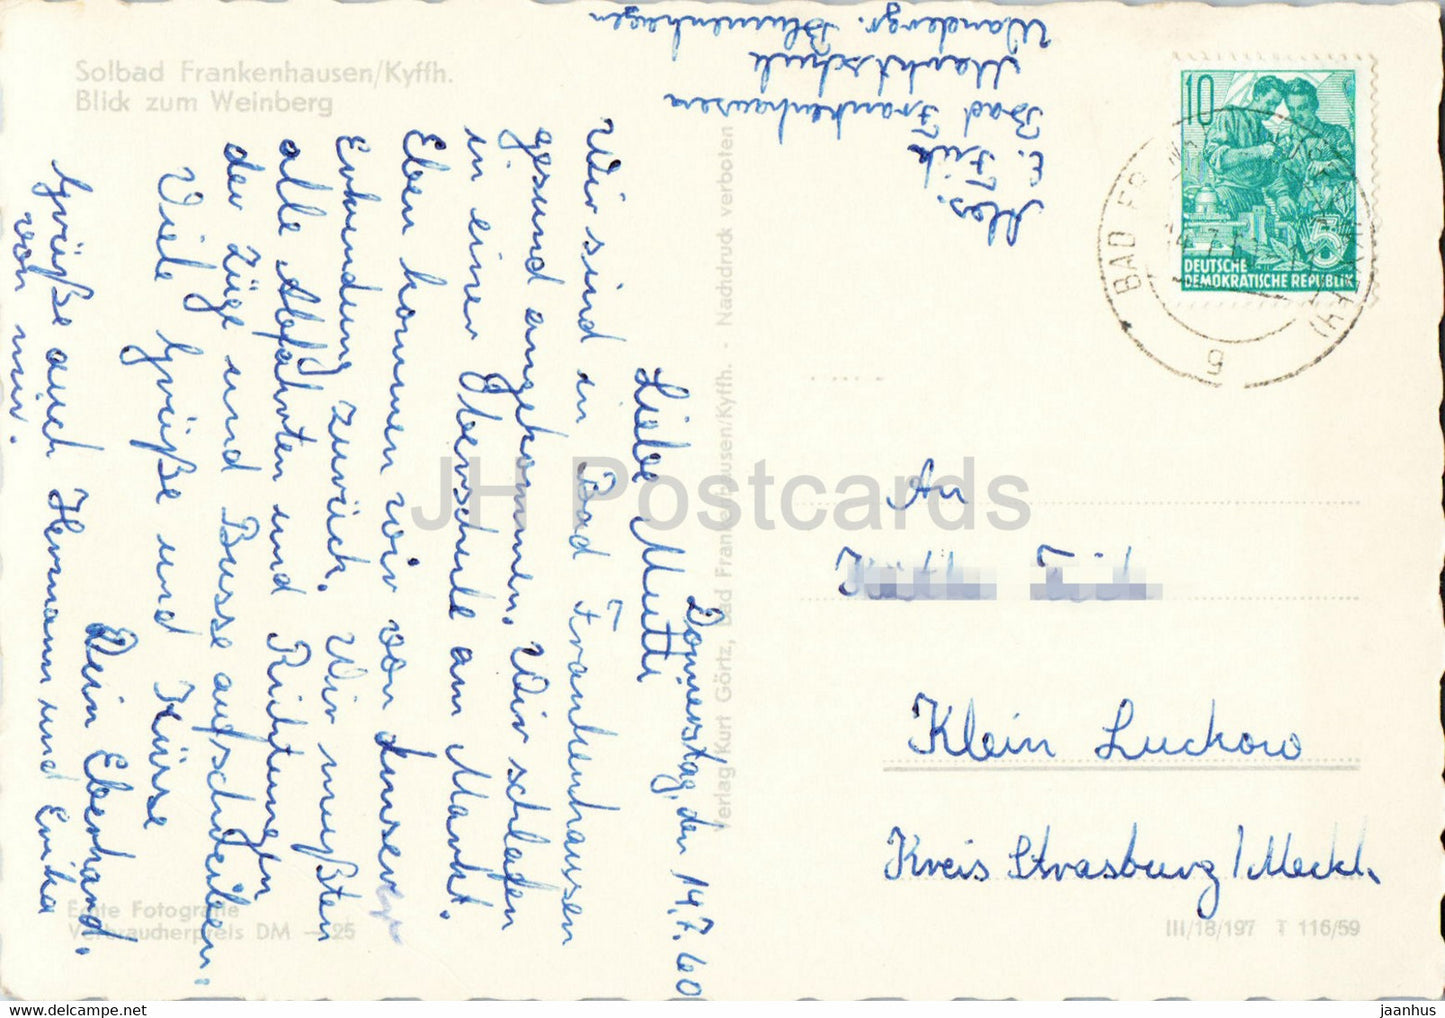 Solbad Frankenhausen/Kyffh.
Blick zum Weinberg
Donnerstag, den 14.7.60
Liebe Mutti
Wir sind in Bad Frankenhausen
gesund angekommen. Wir schlafen
in einer Oberschule am Markt.
Eben kommen wir von unserer
Erkundung zurück. Wir mußten
alle Abfahrten und Richtungen
der Züge und Busse aufschreiben.
Viele Grüße und Küsse
Dein Eberhard.
Grüße auch Hermann und Erika
von mir.
Echte Fotografie
Verbraucherpreis DM -.25
Verlag Kurt Görtz, Bad Frankenhausen/Kyffh. - Nachdruck verboten
Abs.
E.
Bad Frankenhausen
Marktschule
Wandergr. Blumenhagen
10
5
DEUTSCHE
DEMOKRATISCHE REPUBLIK
BAD FR
g
An
Klein Luckow
Kreis Strasburg/Meckl.
III/18/197 T 116/59
JH Postcards
delcampe.net
jaanhus